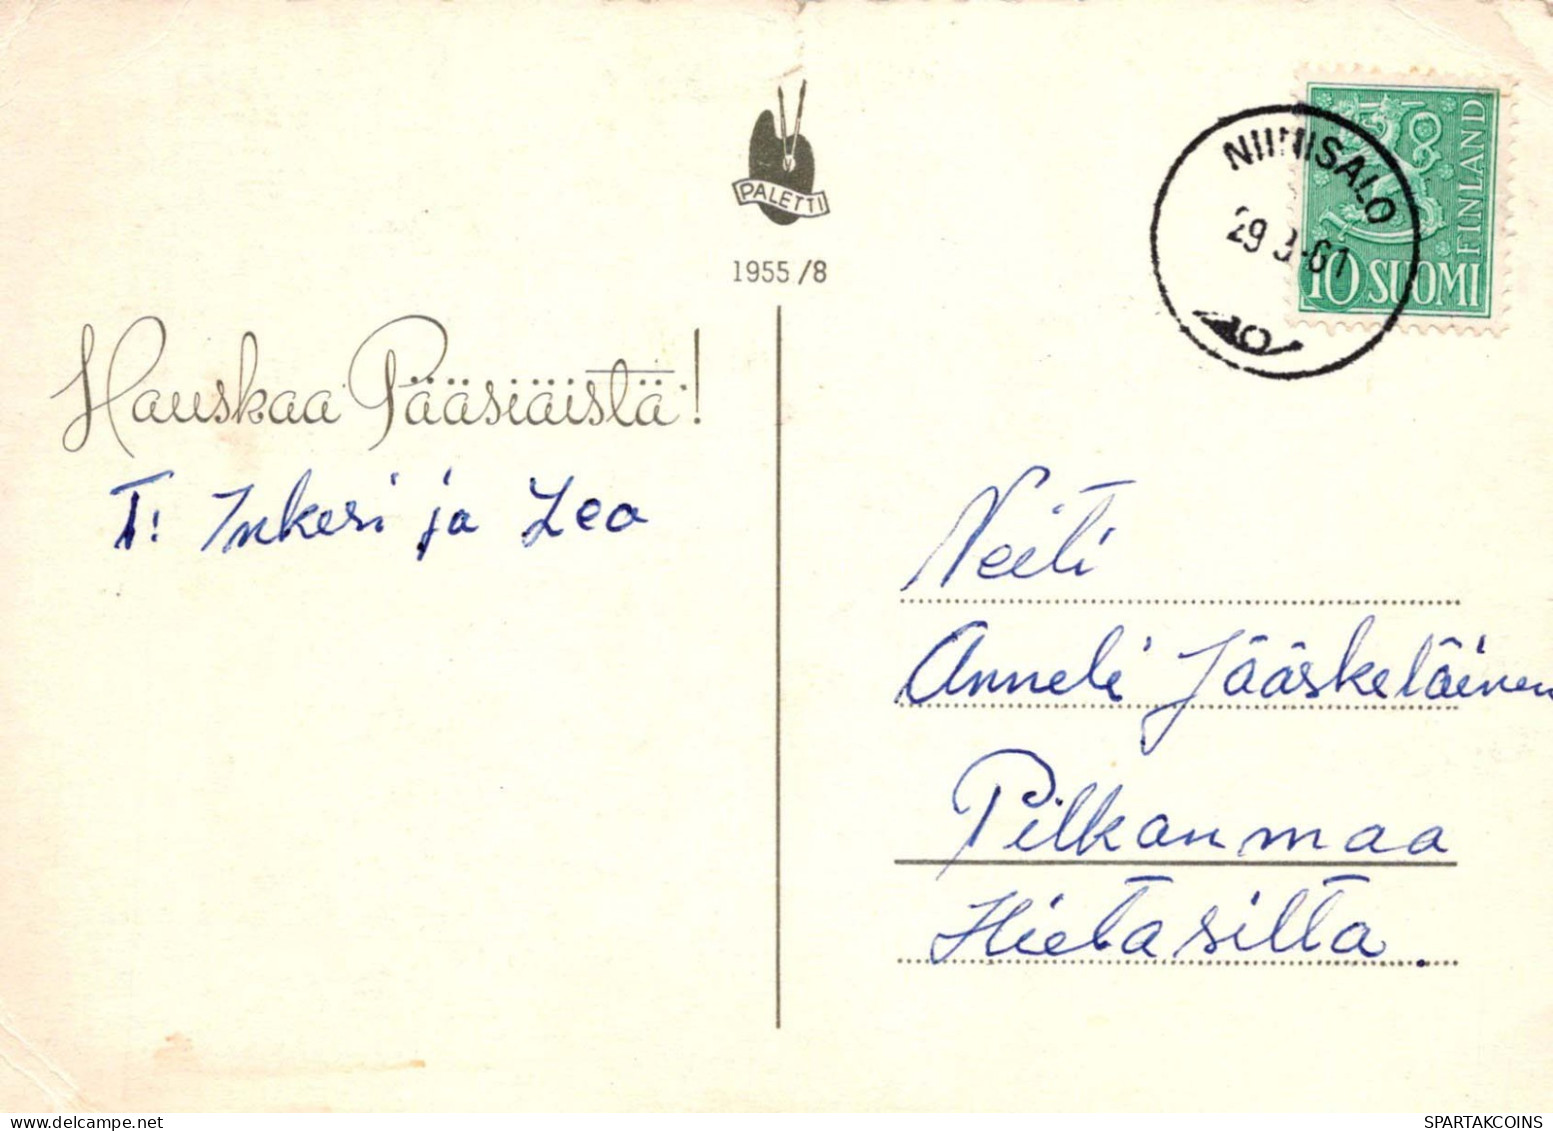 PALETTI
1955/8
Hauskaa Pääsiäistä!
T: Inkeri ja Leo
NIINISALO
29 3-61
10 SUOMI
FINLAND
Neiti
Anneli Jääskeläinen
Pilkanmaa
Hietasilta.
SPARTAKCOINS